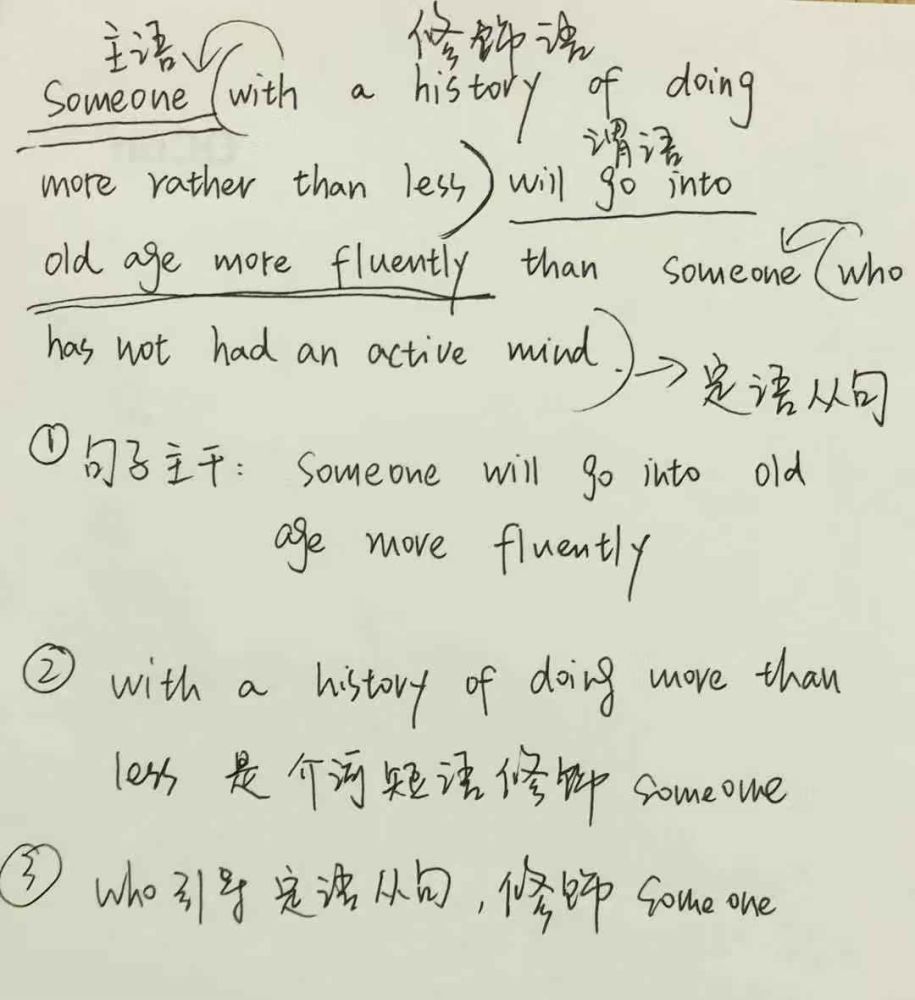 主语 修饰语
Someone (with a history of doing
谓语
more rather than less) will go into
old age more fluently than someone (who
has not had an active mind.) → 定语从句
① 句子主干: Someone will go into old
age more fluently
② with a history of doing more than
less 是介词短语修饰 someone
③ who引导定语从句, 修饰 someone